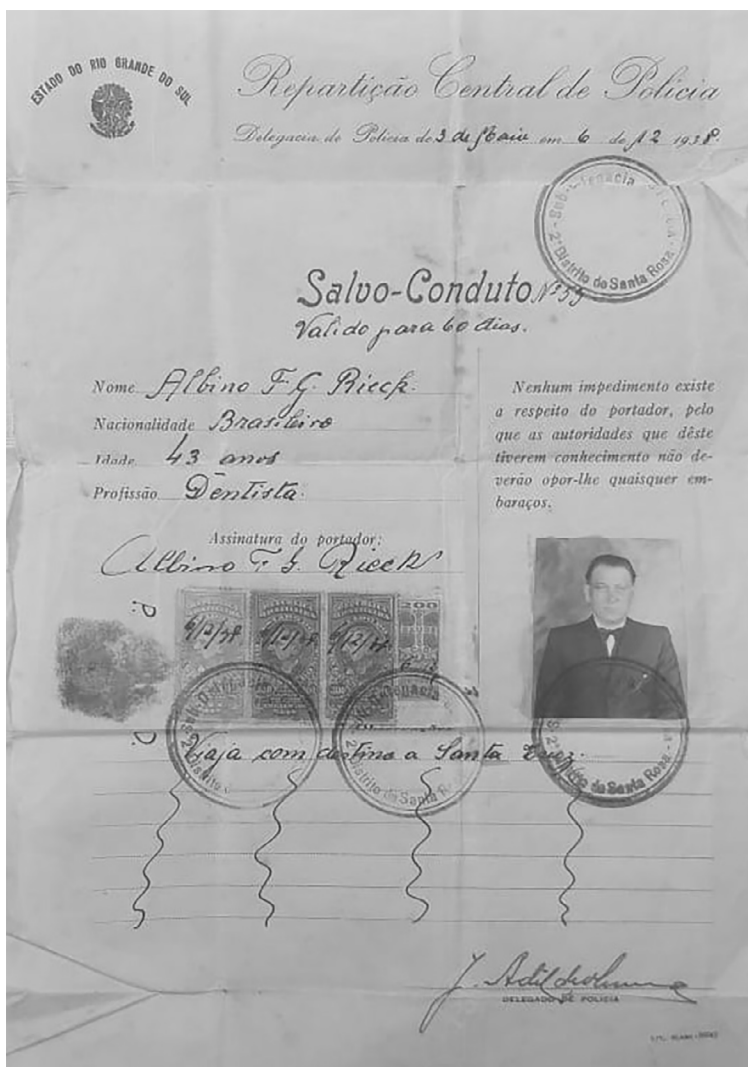 ESTADO DO RIO GRANDE DO SUL
Repartição Central de Policia
Delegacia de Policia de 3 de Maio em 6 de 12 1938.
Sub-Delegacia
2º Distrito de Santa Rosa
Salvo-Conduto Nº 55
Valido para 60 dias.
Nome Albino F. G. Rieck.
Nacionalidade Brasileiro
Idade 43 anos
Profissão Dentista.
Nenhum impedimento existe
a respeito do portador, pelo
que as autoridades que dêste
tiverem conhecimento não de-
verão opor-lhe quaisquer em-
baraços.
Assinatura do portador:
Albino F. G. Rieck
P. D.
6/12/38 6/12/38 6/12/38
200
Viaja com destino a Santa Cruz.
2º Distrito de Santa
2º Distrito de Santa Rosa
DELEGADO DE POLICIA